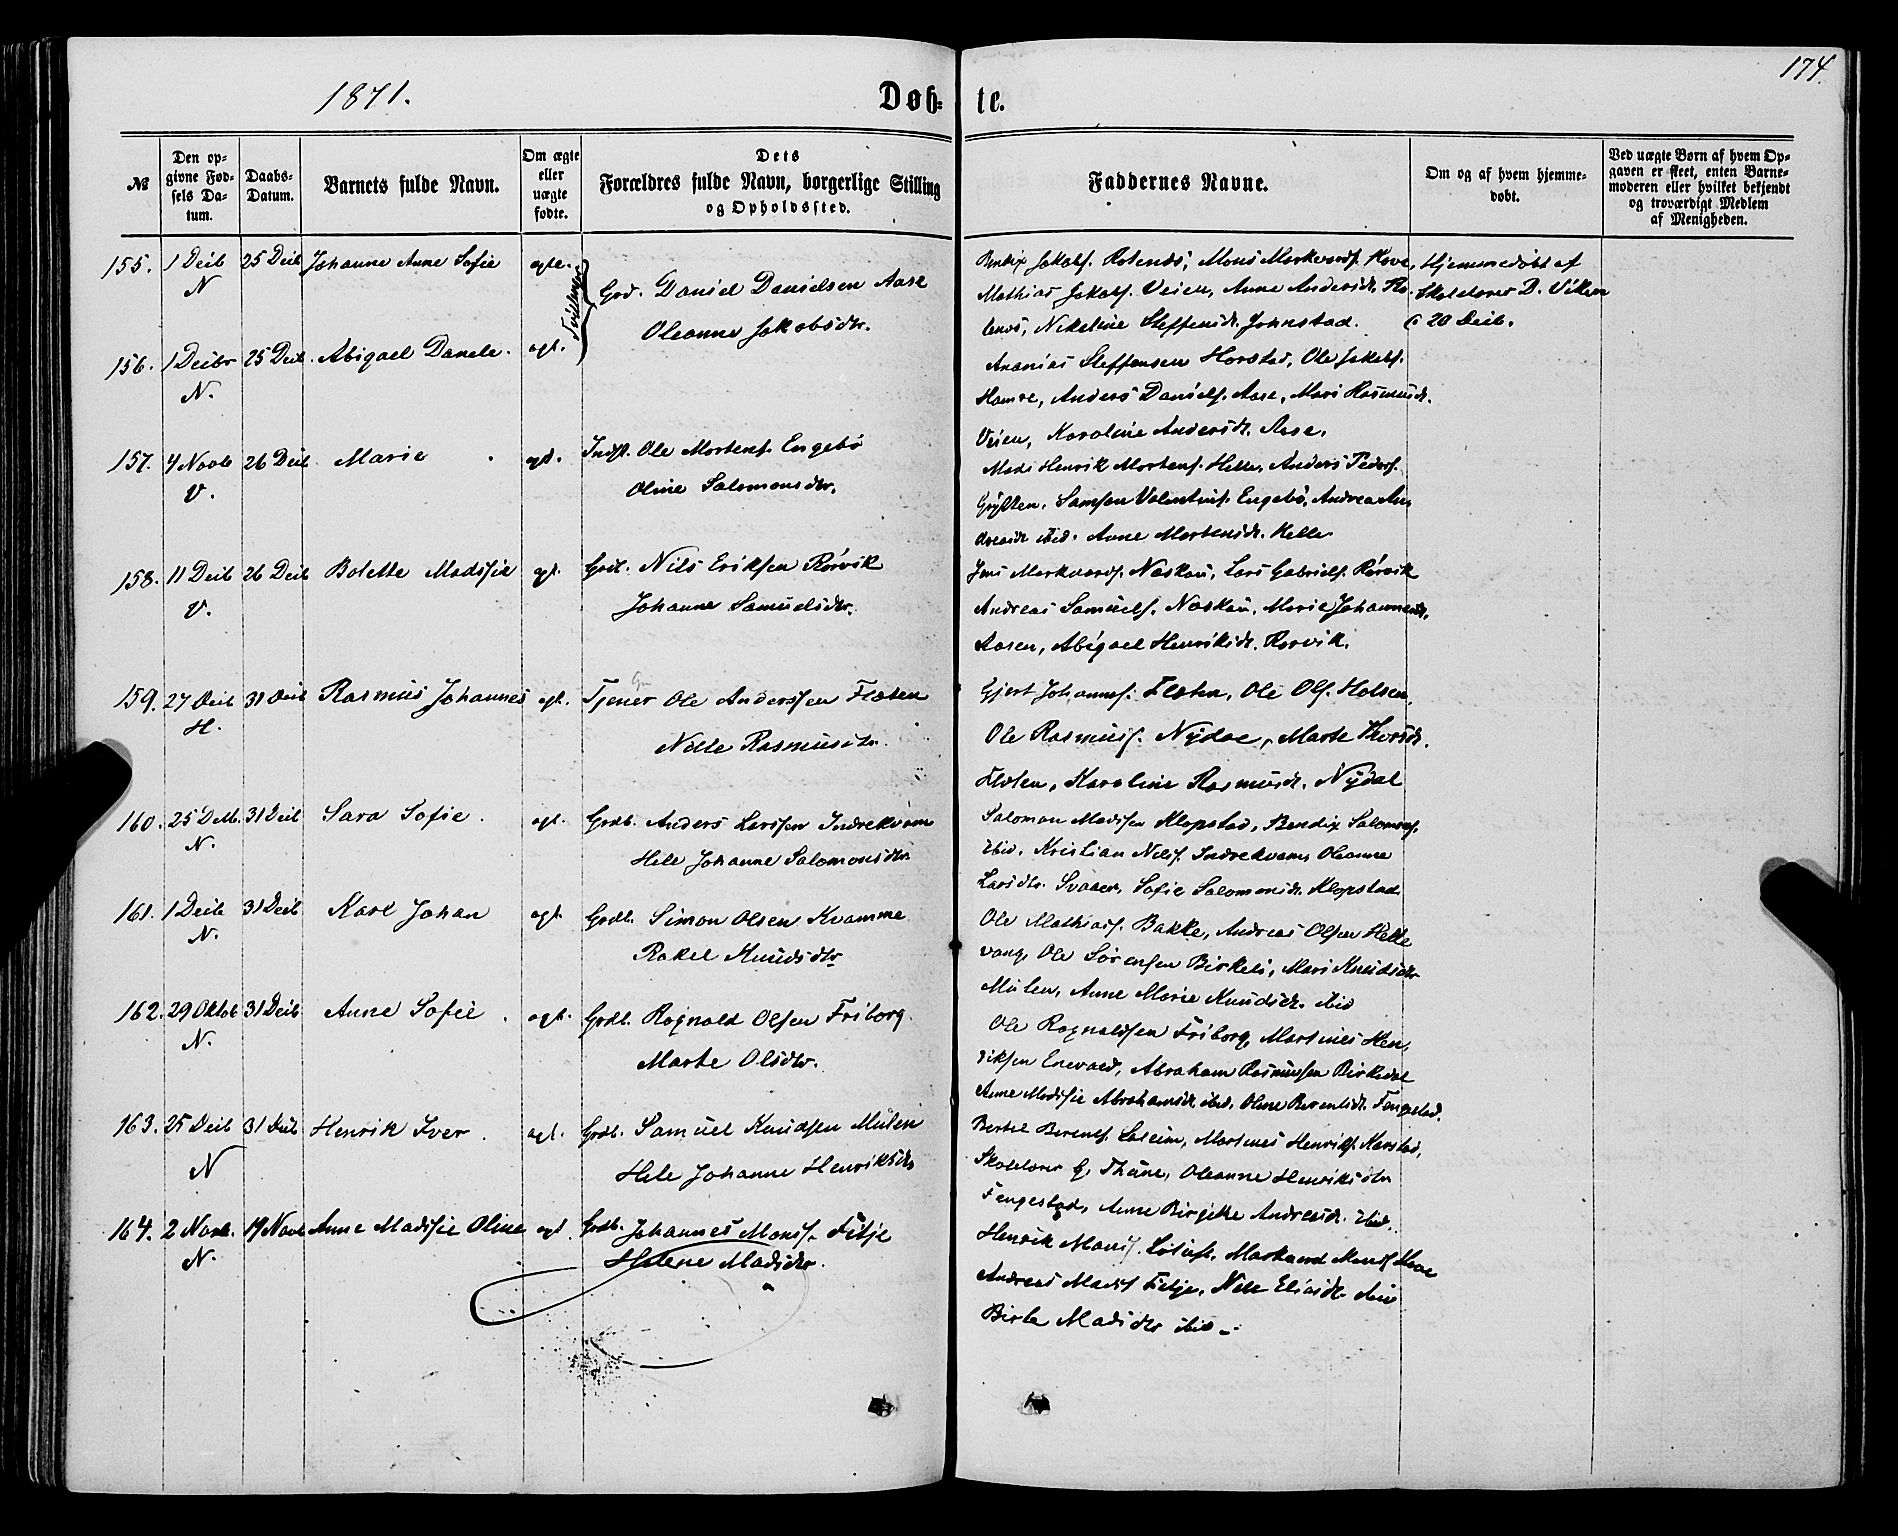 1871.
Døb-
te.
174.
№
Den op-
givne Fød-
sels Da-
tum.
Daabs-
Datum.
Barnets fulde Navn.
Om ægte
eller
uægte
fødte.
Dets
Forældres fulde Navn, borgerlige Stilling
og Opholdssted.
Faddernes Navne.
Om og af hvem hjemme-
døbt.
Ved uægte Børn af hvem Op-
gaven er skeet, enten Barne-
moderen eller hvilket bekjendt
og troværdigt Medlem
af Menigheden.
155. 1 Deib 25 Deib Johanne Anne Sofie ægte.
N
Tvillinger
Grd. Daniel Danielsen Aase
Oleanne Jakobsdtr.
Mons Markvards. Hove,
Mathias Jakobs. Veien, Anne Andersdt.
Nikeline Steffensdt. Johnstad.
Hjemmedøbt af
Skolelærer D. Viken
20 Deib.
156. 1 Deibr 25 Deib. Abigael Danele. ægt.
N.
Ananias Steffensen Horstad, Ole Jakobs.
Hamre, Anders Daniels. Aase, Mari Rasmusdt.
Veien, Karoline Andersdt. Aase.
157. 4 Novb 26 Deib Marie ægt.
V.
Indst. Ole Mortens. Engebø
Oline Salomonsdtr.
Mads Henrik Mortens. Helle, Anders Peders.
Samson Valentins. Engebø, Andrea An-
dreasdt ibid. Anne Mortensdt. Helle
158. 11 Deib 26 Deib Bolette Madsie ægt.
V.
Grdb. Nils Eriksen Rørvik
Johanne Samuelsdtr.
Jens Markvards. Naskau, Lars Gabriels. Rørvik
Andreas Samuels. Naskau, Marie Johannesdt.
Aasen, Abigael Henriksdt. Rørvik.
159. 27 Deib 31 Deib Rasmus Johannes ægt.
H.
Tjener Ole Anderssen Flaten
Nille Rasmusdtr.
Gjert Johanness. Flaten, Ole Ols. Holsen,
Ole Rasmuss. Nydal, Marte
Flaten, Karoline Rasmusdt. Nydal
160. 25 Deib. 31 Deib Sara Sofie. ægt.
N.
Grdb. Anders Larssen Indrekvam
Hele Johanne Salomonsdtr
Salomon Madssen Klopstad, Bendix Salomons.
ibid. Kristian Nils. Indrekvam, Oleanne
Larsdtr. Svaaen, Sofie Salomonsdt. Klopstad
161. 1 Deib 31 Deib Karl Johan ægt.
N.
Grdb. Simon Olsen Kvamme
Rakel Knudsdtr
Ole Mathiass. Bakke, Andreas Olsen Helle
vang, Ole Sørensen Birkeli, Mari Knudsdtr
Mulen, Anne Marie Knudsdt. ibid
162. 29 Oktob 31 Deib Anne Sofie. ægt.
N.
Grdb. Rognald Olsen Friborg
Marte Olsdtr.
Ole Rognaldssen Friborg, Martines Hen-
riksen Enevald, Abraham Rasmussen Birkedal
Anne Madsie Abrahamsdt. ibid, Oline Berentsdt. Fengestad.
163. 25 Deib 31 Deib Henrik Iver. ægt.
N
Grdb. Samuel Knudsen Mulen
Hele Johanne Henriksdtr
Bertel Berents. Martines Henriks. Karstad,
Skolelærer G. Thune, Oleanne Henriksdtr
Fengestad, Anne Birgitte Andreasdt. ibid.
164. 2 Novb. 19 Novb Anne Madsie Oline ægt.
N.
Grdb. Johannes Mons. Fitje
Helene Madsdtr.
Henrik Mons. Markvard Mons. Hove
Andreas Mads. Fitje, Nille Eliasdt.
Birte Madsdtr ibid.